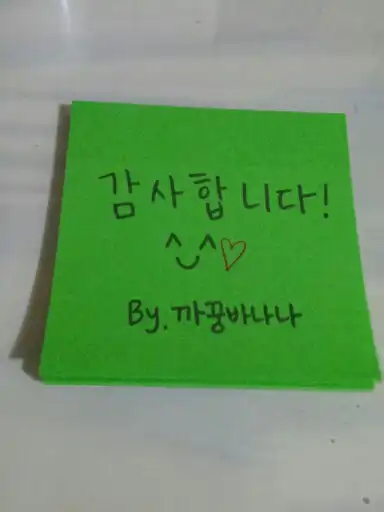 감사합니다!
^‿^♡
By. 까꿍바나나